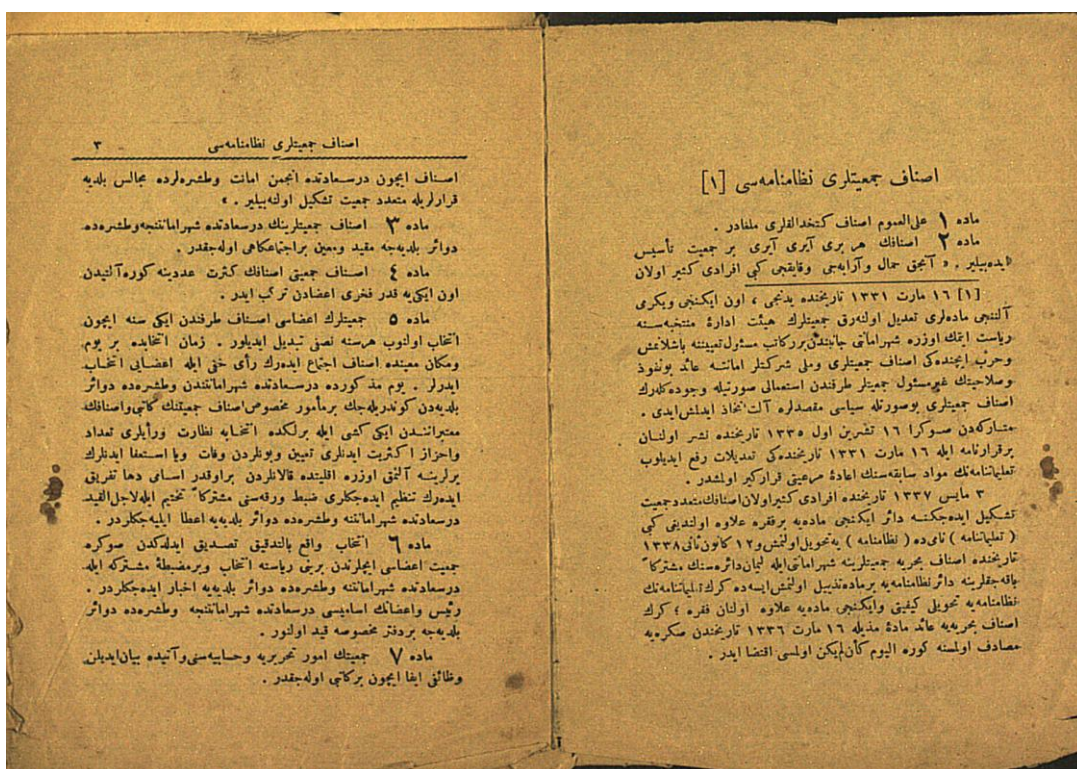 اصناف جمعيتلرى نظامنامه‌سى [١]
ماده ١ على‌العموم اصناف كتخدالقلرى ملغادر .
ماده ٢ اصنافك هر برى آيرى آيرى بر جمعيت تأسيس
ايده‌بيلير . « آنجق حمال وآرابه‌جى وقايقجى كبى افرادى كثير اولان
[١] ١٦ مارت ١٣٣١ تاريخنده يدنجى ، اون ايكنجى ويكرمى
آلتنجى ماده‌لرى تعديل اولنه‌رق جمعيتلرك هيئت ادارهٔ منتخبه‌سنه
رياست ايتمك اوزره شهراماتى جانبندن بررکاتب مسئول تعييننه باشلانمش
وحرب ايچنده‌كى اصناف جمعيتلرى وملى شركتلر اماتشه عائد بونفوذ
وصلاحيتك غيرمسئول جمعيتلر طرفندن استعمالى صورتيله وجوده كله‌رك
اصناف جمعيتلرى بوصورتله سياسى مقصدلره آلت اتخاذ ايدلمش‌ايدى .
متاركه‌دن صوكرا ١٦ تشرين اول ١٣٣٥ تاريخنده نشر اولنان
برقرارنامه ايله ١٦ مارت ١٣٣١ تاريخنده‌كى تعديلات رفع ايديلوب
تعليماتنامه‌نك مواد سابقه‌سنك اعادهٔ مرعيتى قراركير اولمشدر .
٣ مايس ١٣٣٧ تاريخنده افرادى كثير اولان اصنافك متعدد جمعيت
تشكيل ايده‌جكنه دائر ايكنجى ماده‌يه برفقره علاوه اولنديغى كبى
( تعليماتنامه ) نامى‌ده ( نظامنامه ) يه تحويل اولنمش و ١٢ كانون ثانى ١٣٣٨
تاريخنده اصناف بحريه جمعيتلرينه شهراماتى ايله ليمان دائره‌سنك مشتركاً
باقه‌جقلرينه دائر نظامنامه‌يه برماده تذييل اولنمش ايسه‌ده كرك تعليماتنامه‌نك
نظامنامه‌يه تحويلى كيفيتى وايكنجى ماده‌يه علاوه اولنان فقره ؛ كرك
اصناف بحريه‌يه عائد مادهٔ مذيله ١٦ مارت ١٣٣٦ تاريخندن صكره‌يه
مصادف اولمسنه كوره اليوم كأن‌لم‌يكن اولمسى اقتضا ايدر .
اصناف جمعيتلرى نظامنامه‌سى ٣
اصناف ايچون درسعادتده انجمن امانت وطشره‌لرده مجالس بلديه
قرارلريله متعدد جمعيت تشكيل اولنه‌بيلير . »
ماده ٣ اصناف جمعيتلرينك درسعادتده شهرامانتنجه وطشره‌ده
دوائر بلديه‌جه مقيد ومعين براجتماعكاهى اوله‌جقدر .
ماده ٤ اصناف جمعيتى اصنافك كثرت عددينه كوره آلتيدن
اون ايكى‌يه قدر فخرى اعضادن تركب ايدر .
ماده ٥ جمعيتلرك اعضاسى اصناف طرفندن ايكى سنه ايچون
انتخاب اولنوب هرسنه نصفى تبديل ايديلور . زمان انتخابده بر يوم
ومكان معينده اصناف اجتماع ايده‌رك رأى خفى ايله اعضايى انتخاب
ايدرلر . يوم مذكورده درسعادتده شهرامانتندن وطشره‌ده دوائر
بلديه‌دن كوندريله‌جك برمأمور مخصوص اصناف جمعيتنك كاتبى واصنافك
معتبراننـدن ايكى كشى ايله برلكده انتخابه نظارت ورأيلرى تعداد
واحراز اكثريت ايدنلرى تعيين وبونلردن وفات ويا استعفا ايدنلرك
يرلرينه آلنمق اوزره اقليتده قالانلردن براوقدر اسامى دها تفريق
ايده‌رك تنظيم ايده‌جكلرى ضبط ورقه‌سنى مشتركاً تختيم ايله لاجل‌القيد
درسعادتده شهرامانتنه وطشره‌ده دوائر بلديه‌يه اعطا ايليه‌جكلردر .
ماده ٦ انتخاب واقع بالتدقيق تصديق ايدلدكدن صوكره
جمعيت اعضاسى ايچلرندن برينى رياسته انتخاب وبرمضبطهٔ مشتركه ايله
درسعادتده شهرامانتنه وطشره‌ده دوائر بلديه‌يه اخبار ايده‌جكلردر .
رئيس واعضانك اساميسى درسعادتده شهرامانتنجه وطشره‌ده دوائر
بلديه‌جه بردفتر مخصوصه قيد اولنور .
ماده ٧ جمعيتك امور تحريريه وحسابيه‌سنى وآتيده بيان ايديلن
وظائفى ايفا ايچون بركاتبى اوله‌جقدر .